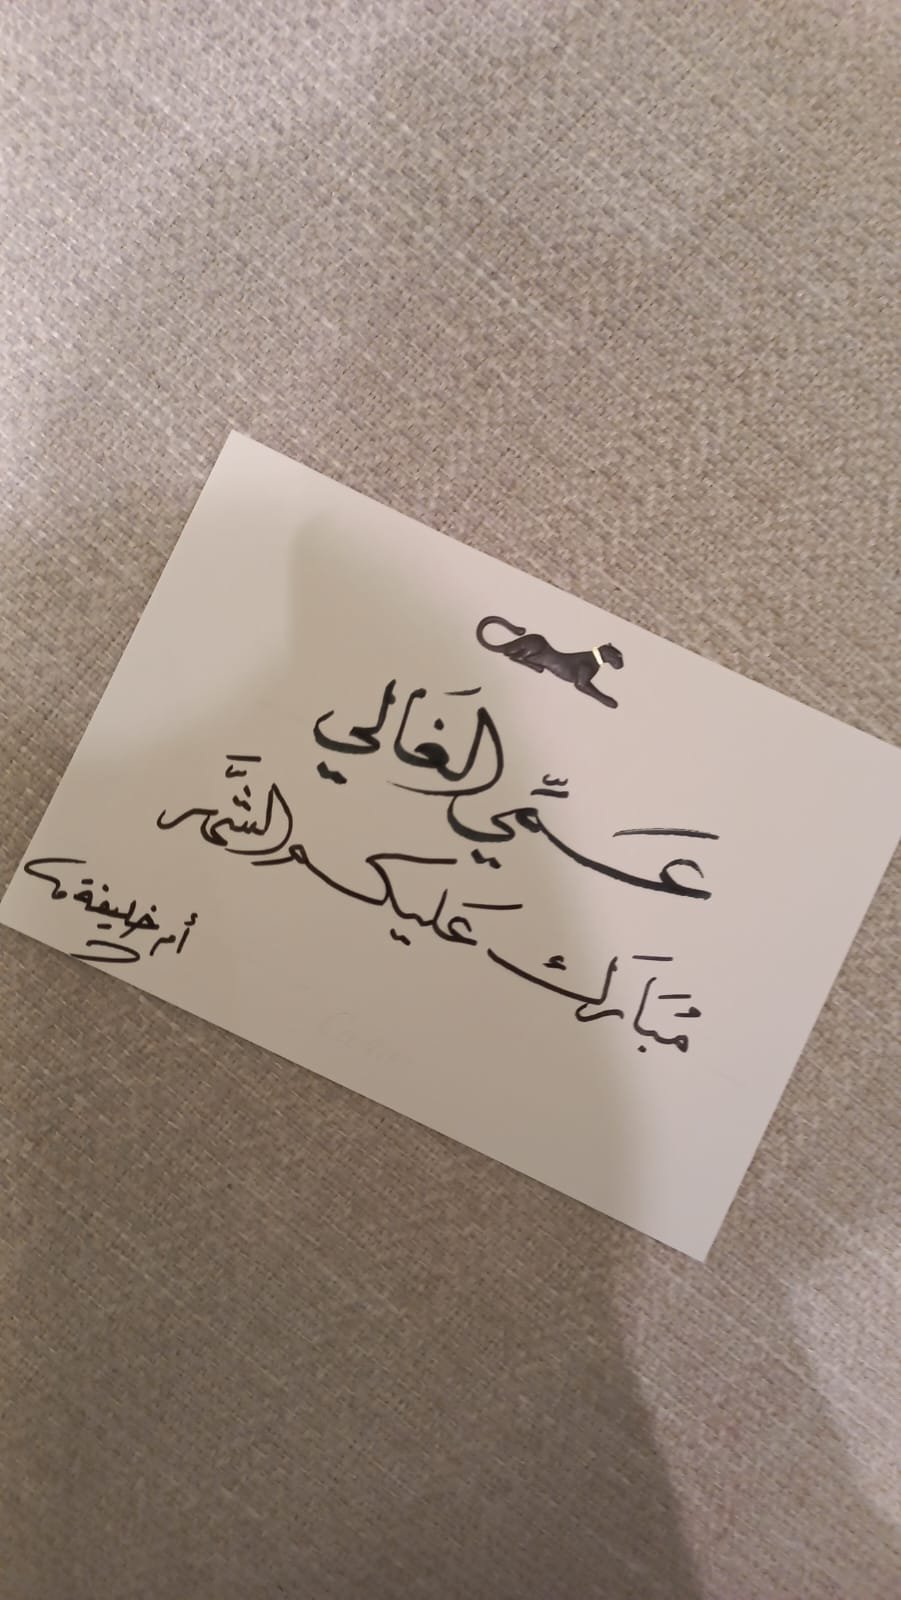 عَمِّي الغَالي
مُبَارَك عَليكم الشَّهر
أم خليفة